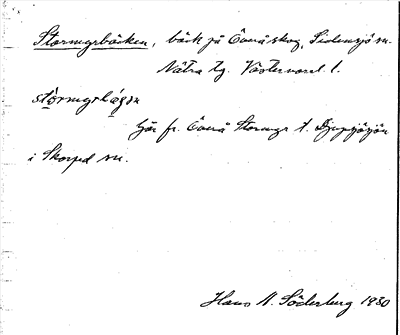 Stormyrbäcken, bäck på Önnåskog, Sidensjö sn.
Nätra tg. Västernorrl. l.
stòrmyrbä́gɔn
hör fr. Önnå Stormyr t. Djupsjön
i Skorped sn.
Hans N. Söderberg 1930